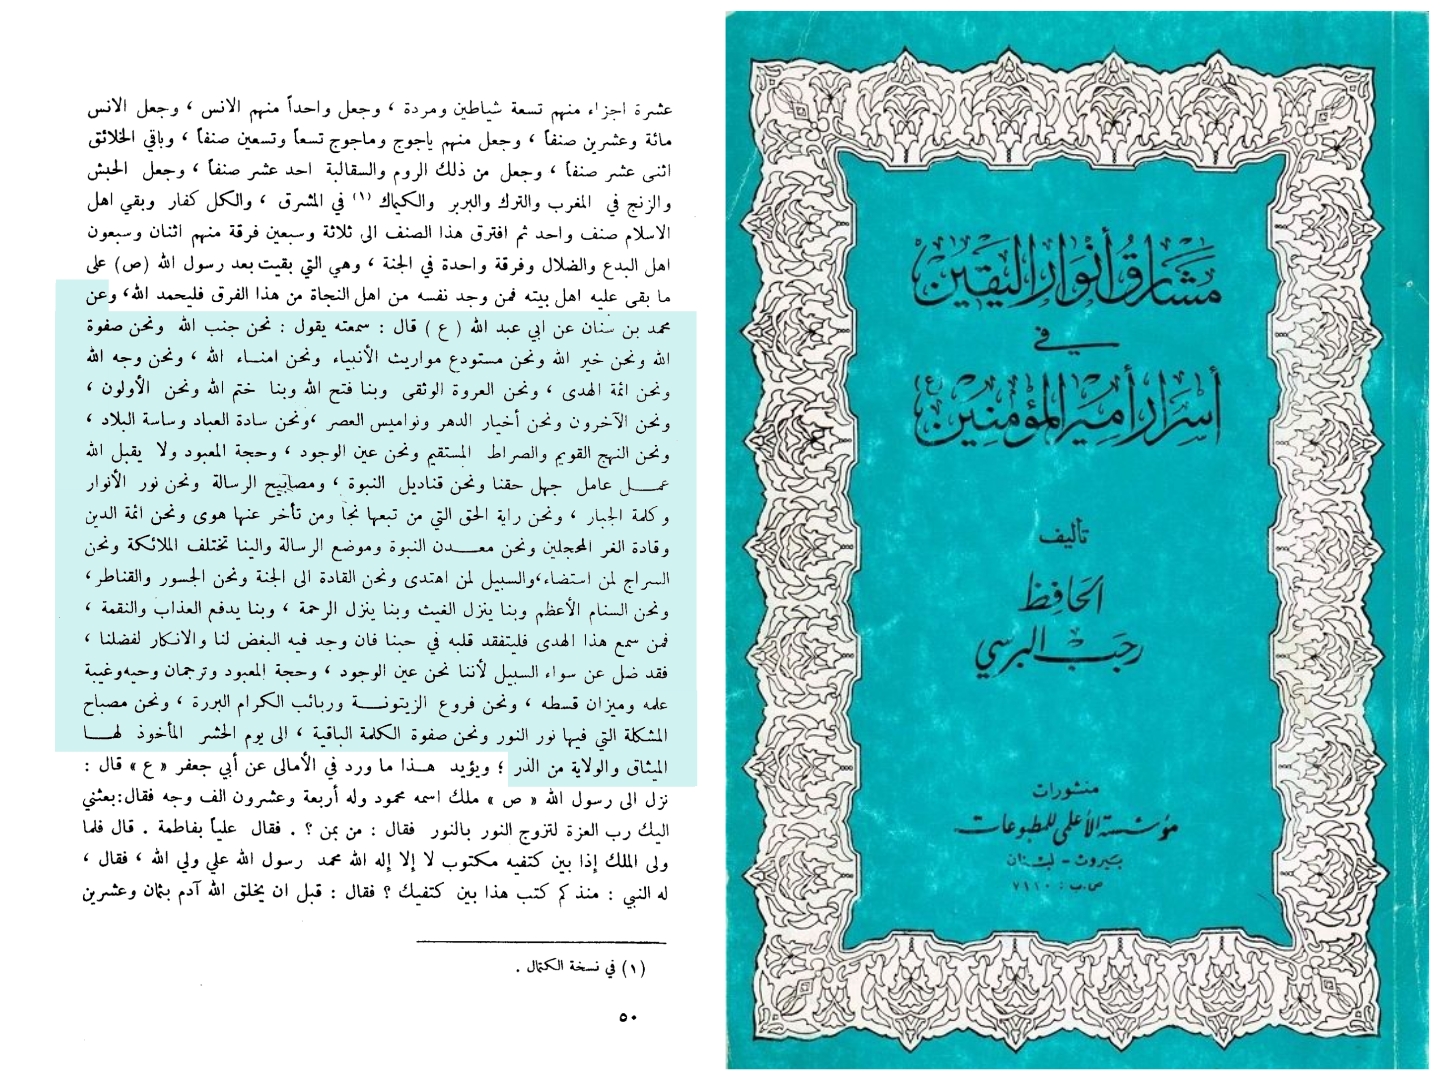 عشرة اجزاء منهم تسعة شياطين ومردة ، وجعل واحداً منهم الانس ، وجعل الانس
مائة وعشرين صنفاً ، وجعل منهم ياجوج وماجوج تسعاً وتسعين صنفاً ، وباقي الخلائق
اثنى عشر صنفاً ، وجعل من ذلك الروم والسقالبة احد عشر صنفاً ، وجعل الحبش
والزنج في المغرب والترك والبربر والكياك (١) في المشرق ، والكل كفار وبقي اهل
الاسلام صنف واحد ثم افترق هذا الصنف الى ثلاثة وسبعين فرقة منهم اثنان وسبعون
اهل البدع والضلال وفرقة واحدة في الجنة ، وهي التي بقيت بعد رسول الله (ص) على
ما بقى عليه اهل بيته فمن وجد نفسه من اهل النجاة من هذا الفرق فليحمد الله، وعن
محمد بن سنان عن ابي عبد الله ( ع ) قال : سمعته يقول : نحن جنب الله ونحن صفوة
الله ونحن خير الله ونحن مستودع مواريث الأنبياء ونحن امناء الله ، ونحن وجه الله
ونحن ائمة الهدى ، ونحن العروة الوثقى وبنا فتح الله وبنا ختم الله ونحن الأولون ،
ونحن الآخرون ونحن أخيار الدهر ونواميس العصر ،ونحن سادة العباد وساسة البلاد ،
ونحن النهج القويم والصراط المستقيم ونحن عين الوجود ، وحجة المعبود ولا يقبل الله
عمل عامل جهل حقنا ونحن قناديل النبوة ، ومصابيح الرسالة ونحن نور الأنوار
وكلمة الجبار ، ونحن راية الحق التي من تبعها نجا ومن تأخر عنها هوى ونحن ائمة الدين
وقادة الغر المحجلين ونحن معدن النبوة وموضع الرسالة والينا تختلف الملائكة ونحن
السراج لمن استضاء،والسبيل لمن اهتدى ونحن القادة الى الجنة ونحن الجسور والقناطر،
ونحن السنام الأعظم وبنا ينزل الغيث وبنا ينزل الرحمة ، وبنا يدفع العذاب والنقمة ،
فمن سمع هذا الهدى فليتفقد قلبه في حبنا فان وجد فيه البغض لنا والانكار لفضلنا ،
فقد ضل عن سواء السبيل لأننا نحن عين الوجود ، وحجة المعبود وترجمان وحيه وغيبة
علمه وميزان قسطه ، ونحن فروع الزيتونة وربائب الكرام البررة ، ونحن مصباح
المشكلة التي فيها نور النور ونحن صفوة الكلمة الباقية ، الى يوم الحشر المأخوذ لها
الميثاق والولاية من الذر ؛ ويؤيد هذا ما ورد في الأمالى عن أبي جعفر « ع » قال :
نزل الى رسول الله « ص » ملك اسمه محمود وله أربعة وعشرون الف وجه فقال:بعثني
اليك رب العزة لتزوج النور بالنور فقال : من بمن ؟ . فقال علياً بفاطمة . قال فلما
ولى الملك إذا بين كتفيه مكتوب لا إلا إله الله محمد رسول الله علي ولي الله ، فقال ،
له النبي : منذ كم كتب هذا بين كتفيك ؟ فقال : قبل ان يخلق الله آدم بثمان وعشرين
(١) في نسخة الكتال .
٥٠
مشارق أنوار اليقين
في
أسرار أمير المؤمنين (ع)
تأليف
الحافظ
رجب البرسي
منشورات
مؤسسة الأعلمي للمطبوعات
بيروت - لبنان
ص.ب : ٧١٢٠